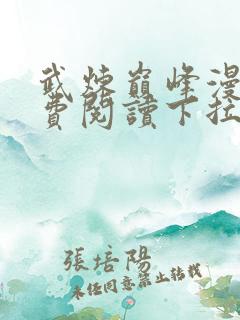 武炼巔峰漫
費閱讀下拉
張培陽
未经同意禁止转载